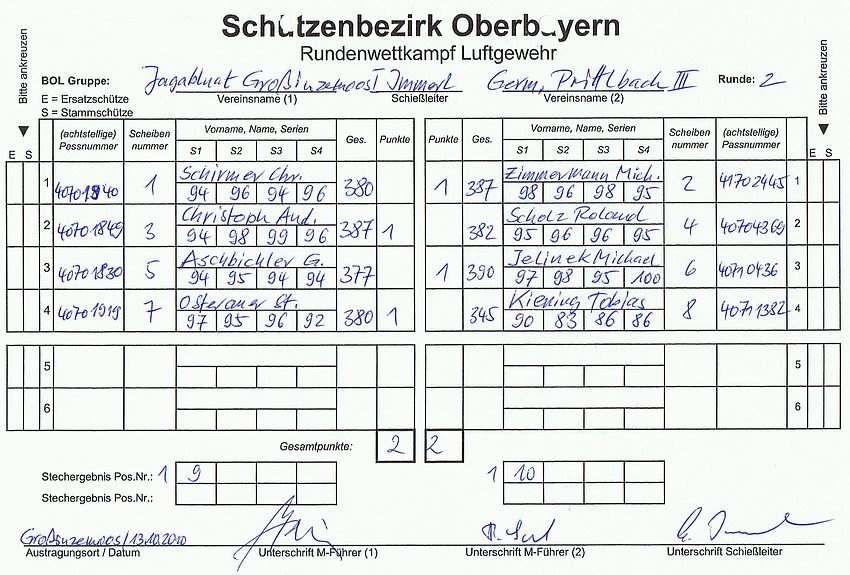 Schützenbezirk Oberbayern
Rundenwettkampf Luftgewehr
Bitte ankreuzen
BOL Gruppe: Jagabluat Großinzemoos I Immerl Germ. Prittlbach III Runde: 2
Vereinsname (1) Schießleiter Vereinsname (2)
Bitte ankreuzen
E = Ersatzschütze
S = Stammschütze
E S (achtstellige) Passnummer Scheiben nummer Vorname, Name, Serien Ges. Punkte Punkte Ges. Vorname, Name, Serien Scheiben nummer (achtstellige) Passnummer E S
S1 S2 S3 S4 S1 S2 S3 S4
1 40701840 1 Schirmer Chr. 380 1 387 Zimmermann Mich. 2 41702445 1
94 96 94 96 98 96 98 95
2 40701849 3 Christoph And. 387 1 382 Scholz Roland 4 40704369 2
94 98 99 96 95 96 96 95
3 40701830 5 Aschbichler G. 377 1 390 Jelinek Michael 6 40710436 3
94 95 94 94 97 98 95 100
4 40701919 7 Osterauer St. 380 1 345 Kiening Tobias 8 40711382 4
97 95 96 92 90 83 86 86
5 5
6 6
Gesamtpunkte: 2 2
Stechergebnis Pos.Nr.: 1 9 1 10
Stechergebnis Pos.Nr.:
Großinzemoos / 13.10.2010
Austragungsort / Datum Unterschrift M-Führer (1) Unterschrift M-Führer (2) Unterschrift Schießleiter